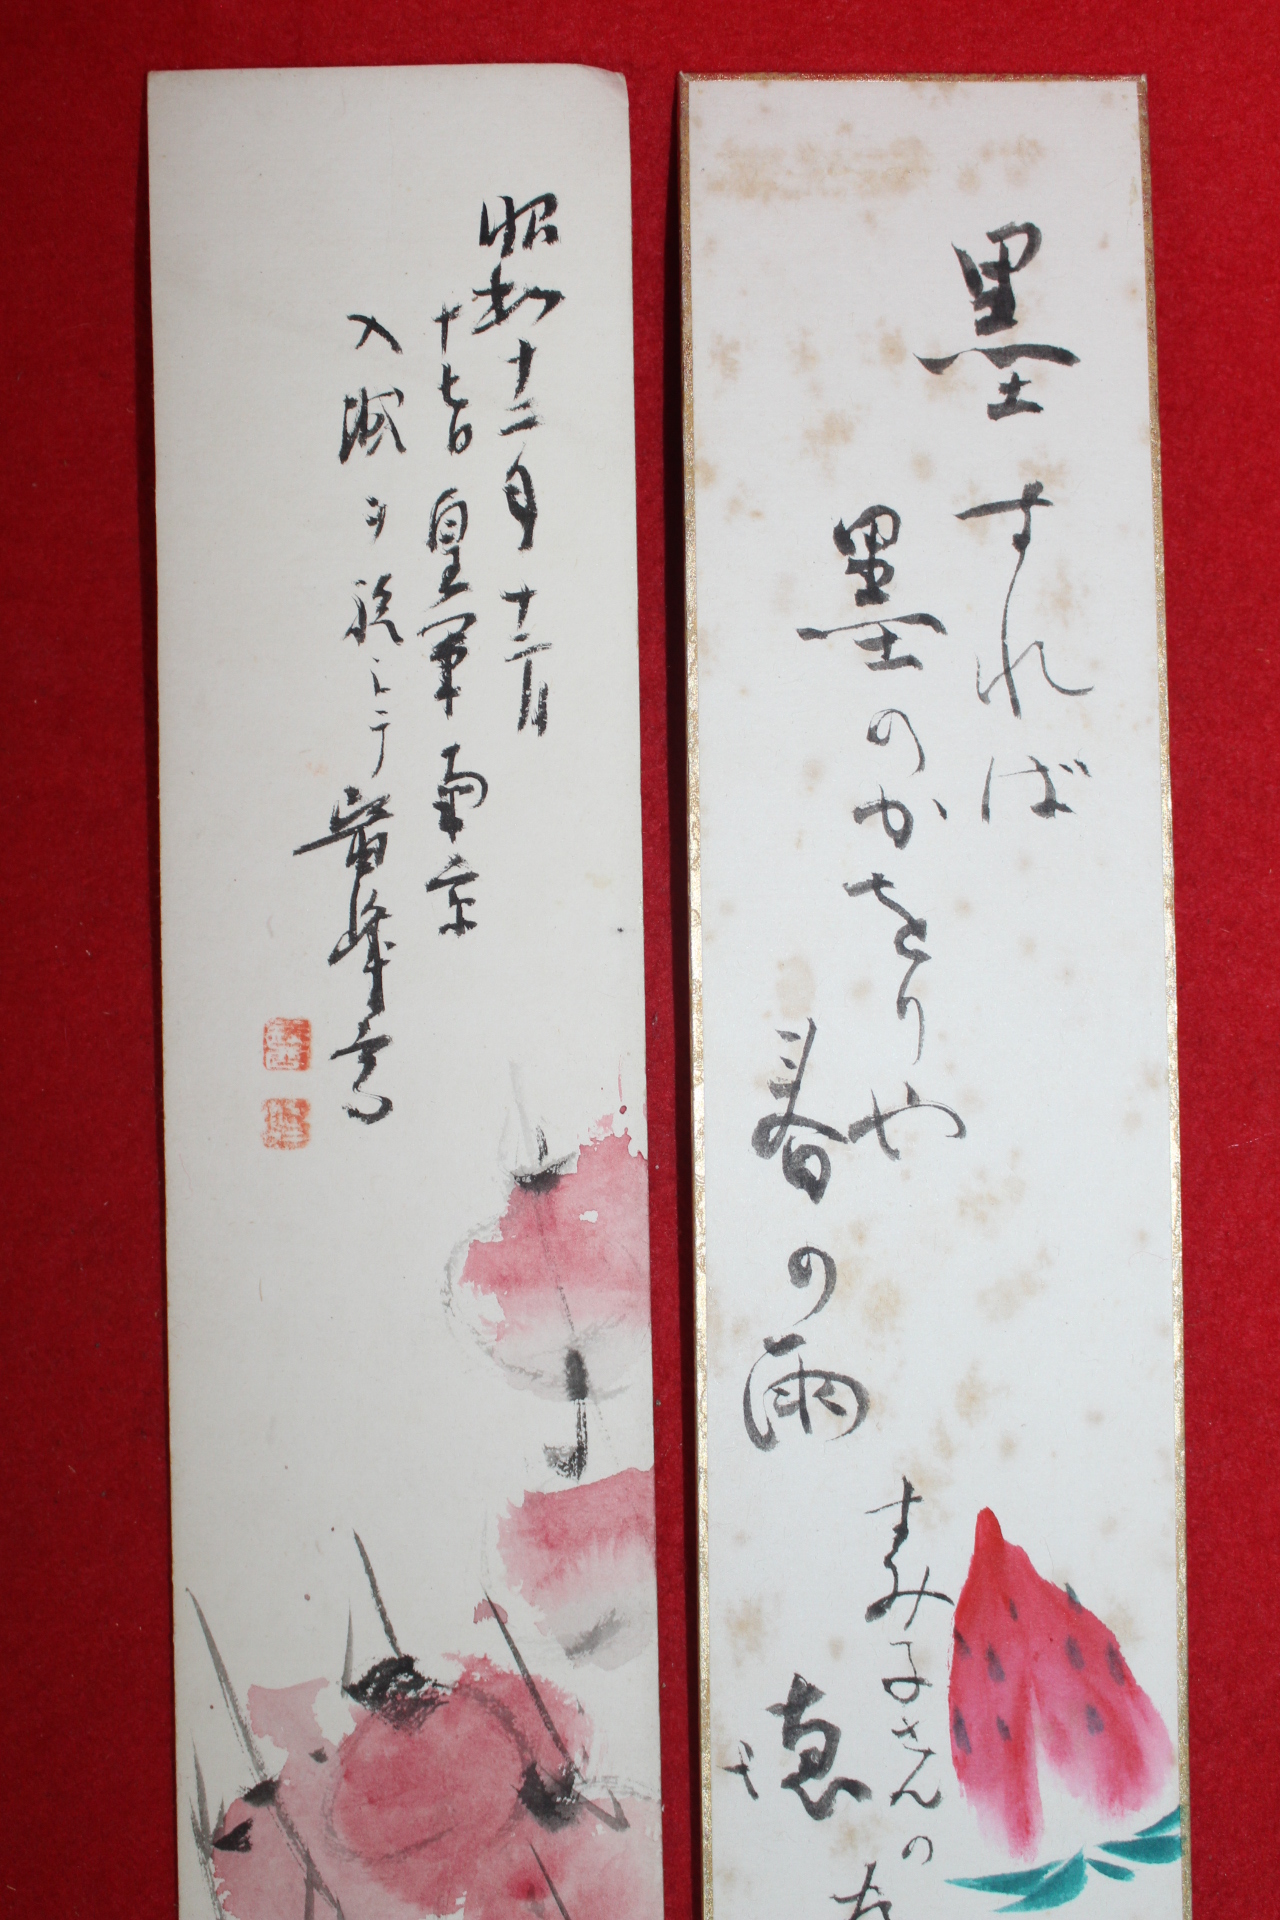 墨すれば
墨のかをりや
春の雨
すみ子さんの
昭和十二年十二月
十七日皇軍南京
入城ヲ祝シテ